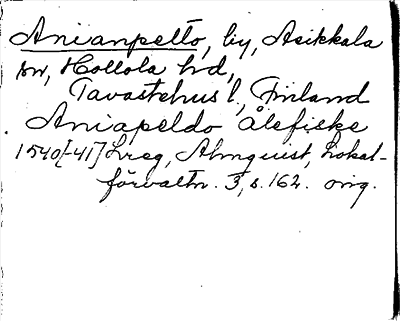 Anianpelto, by, Asikkala
sn, Hollola hd,
Tavastehus l, Finland
Aniapeldo ålefiske
1540[-41] Lreg, Almquist, Lokal-
förvaltn. 3, s. 162. orig.